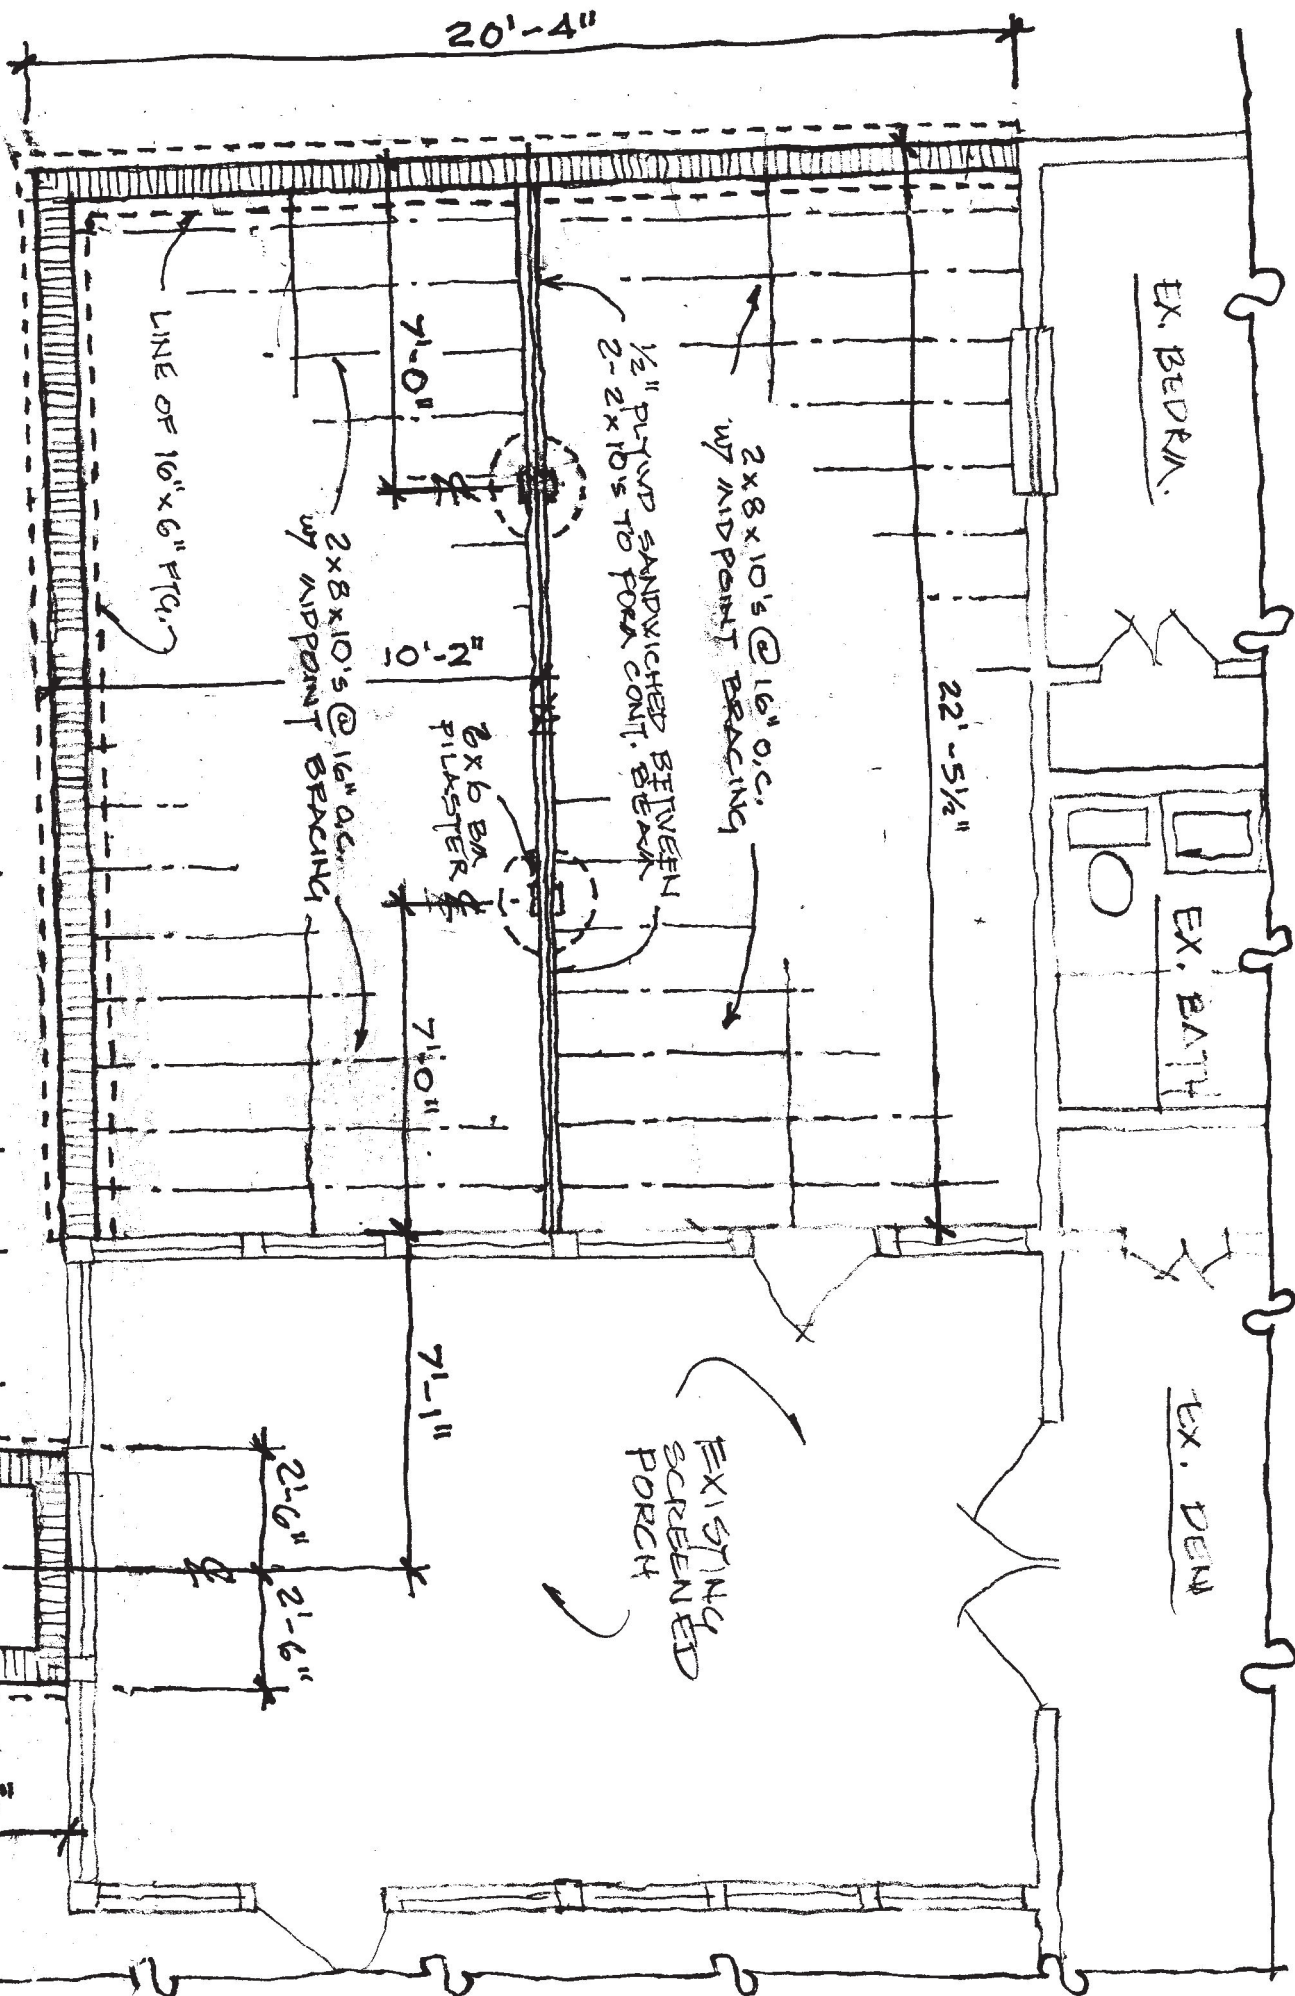 20'-4"
EX. BEDRM.
EX. BATH
EX. DEN
22'-5½"
2x8x10's @ 16" O.C.
w/ MIDPOINT BRACING
½" PLYWD SANDWICHED BETWEEN
2-2x10's TO FORM CONT. BEAM
7'-0"
℄
10'-2"
8x6 BM
PILASTER
℄
7'-0"
2x8x10's @ 16" O.C.
w/ MIDPOINT BRACING
LINE OF 16"x6" FTG.
EXISTING
SCREENED
PORCH
7'-1"
2'-6"
2'-6"
℄